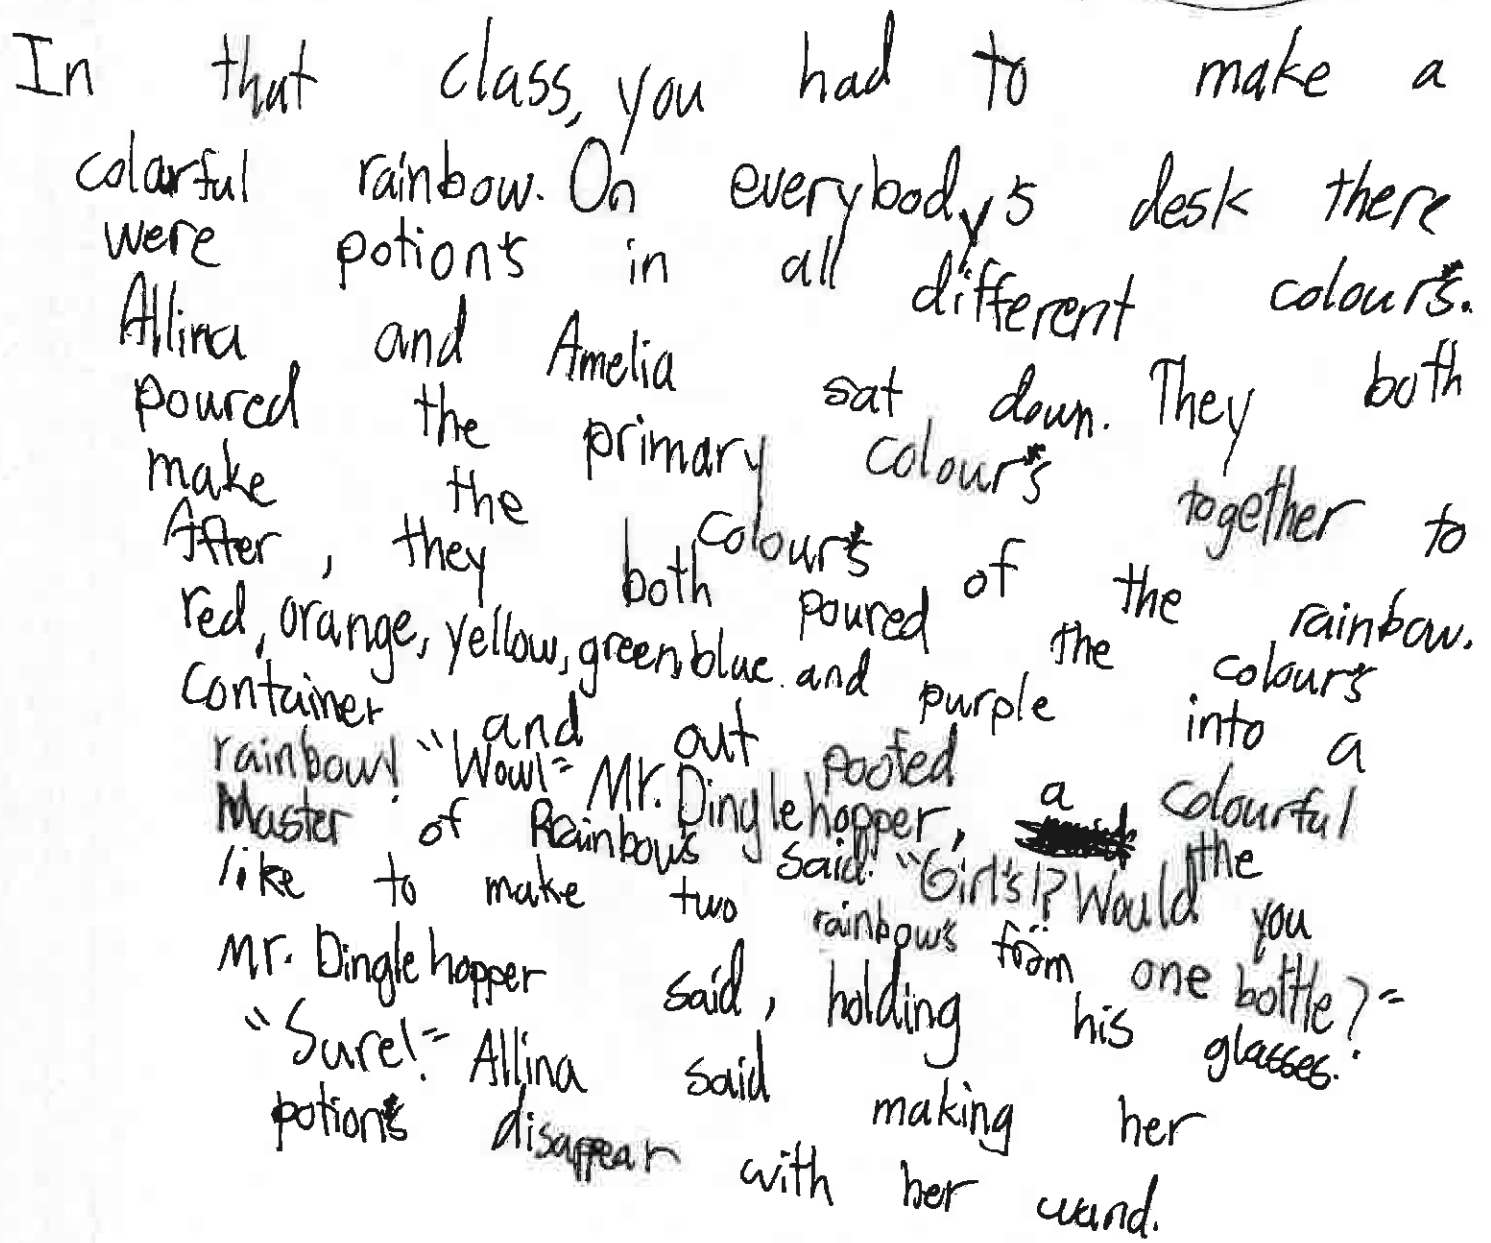 In that class, you had to make a
colorful rainbow. On everybodys desk there
were potions in all different colours.
Allina and Amelia sat down. They both
poured the primary colours together to
make the colours of the rainbow.
After, they both poured the colours
red, orange, yellow, green, blue and purple into a
container and out pooted a colourful
rainbow! "Wow!" Mr. Dinglehopper, the
Master of Rainbows said. "Girls!? Would you
like to make two rainbows from one bottle?"
Mr. Dinglehopper said, holding his glasses.
"Sure!" Allina said making her
potions disappear with her wand.